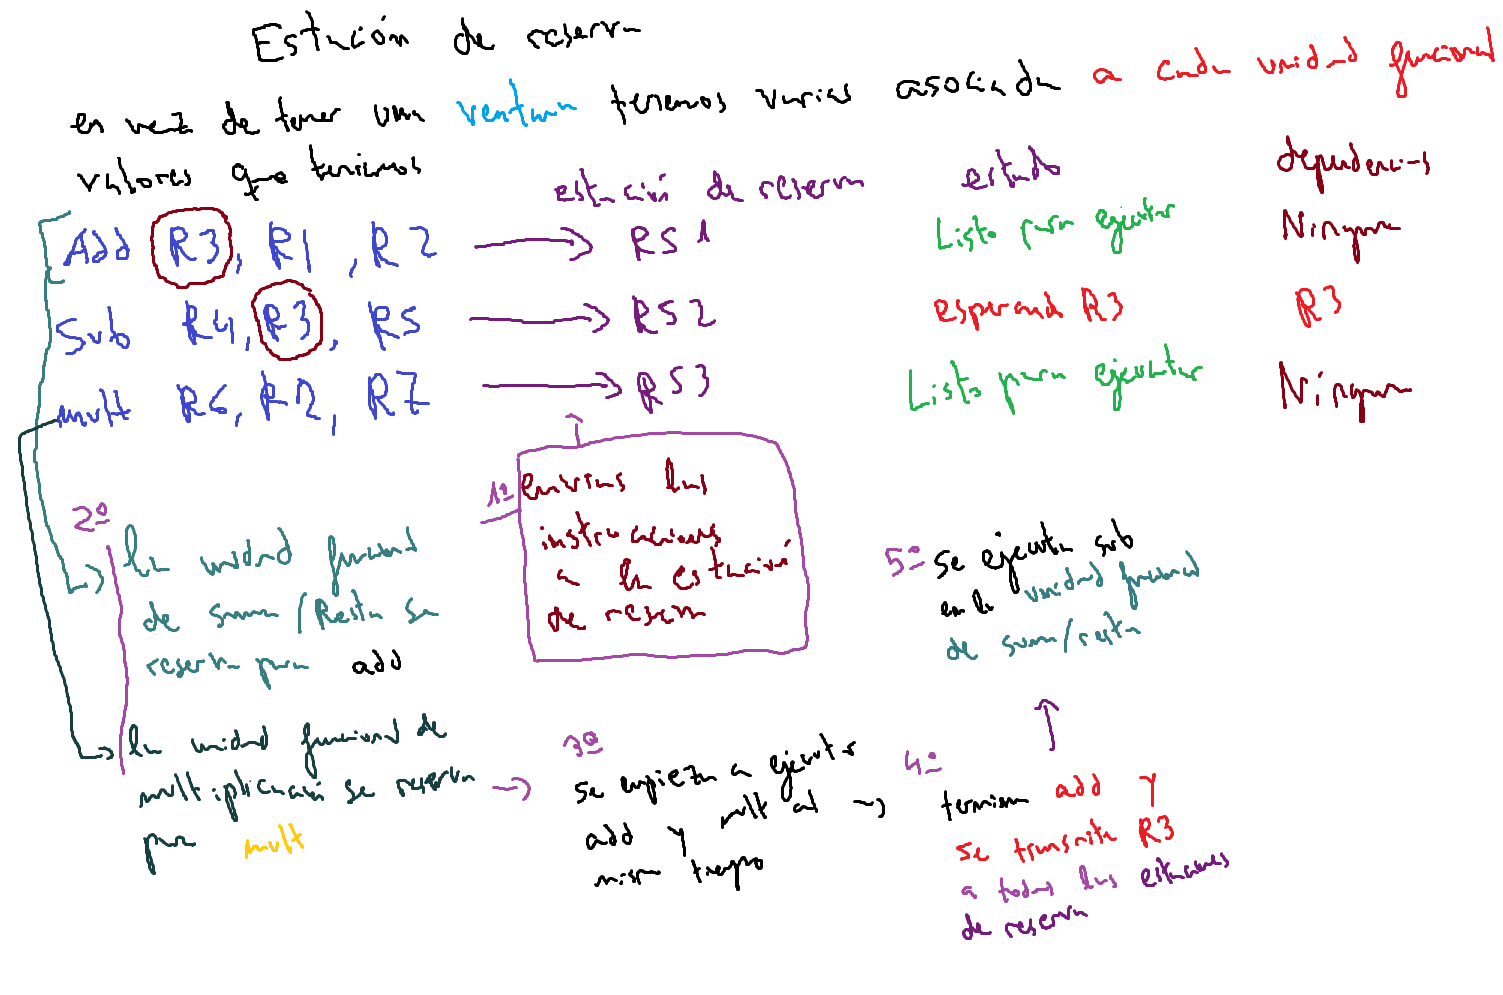 Estación de reserva
en vez de tener una ventana tenemos varias asociada a cada unidad funcional
valores que teniamos
estación de reserva
estado
dependencias
Add R3, R1, R2 → RS1
Listo para ejecutar
Ninguna
Sub R4, R3, R5 → RS2
esperando R3
R3
mult R6, R2, R7 → RS3
Listo para ejecutar
Ninguna
1º envias las
instrucciones
a la estación
de reserva
2º
la unidad funcional
de suma/Resta se
reserva para add
la unidad funcional de
multiplicación se reserva
para mult
3º
se empieza a ejecutar
add y mult al
mismo tiempo
4º
termina add y
se transmite R3
a todas las estaciones
de reserva
5º se ejecuta sub
en la unidad funcional
de suma/resta